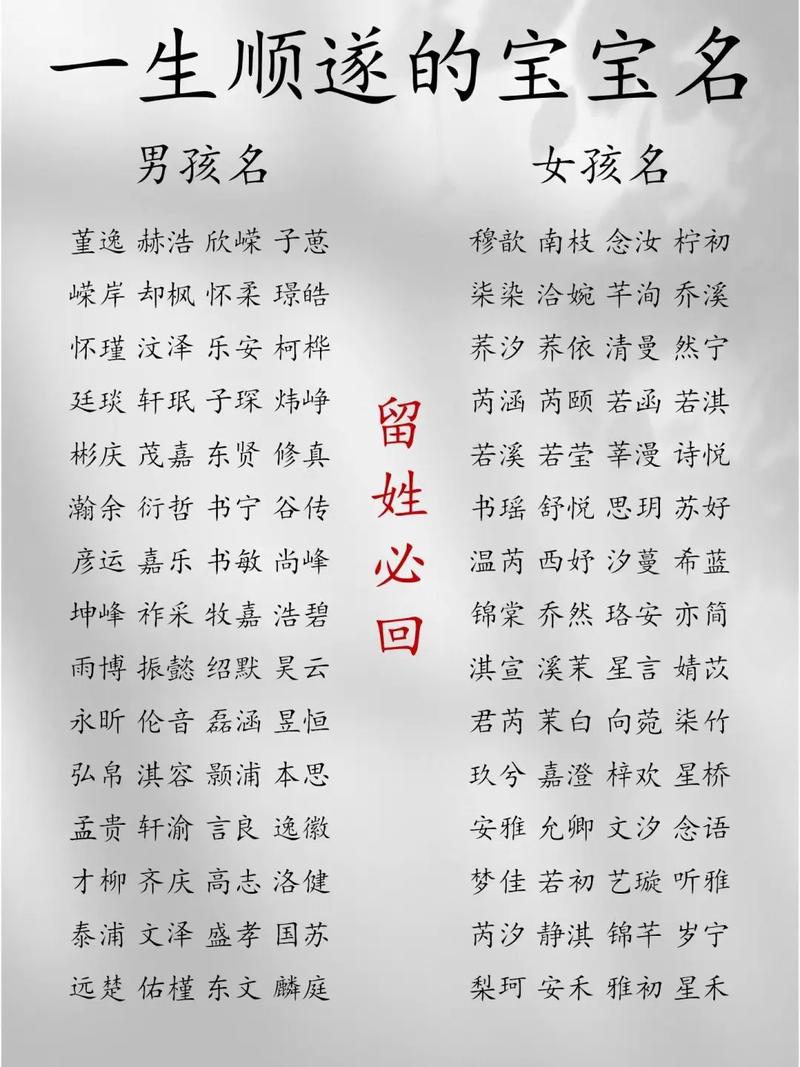 一生顺遂的宝宝名
男孩名
堇逸 赫浩 欣嵘 子蒽
嵘岸 却枫 怀柔 璟皓
怀瑾 汶泽 乐安 柯桦
廷琰 轩珉 子琛 炜峥
彬庆 茂嘉 东贤 修真
瀚余 衍哲 书宁 谷传
彦运 嘉乐 书敏 尚峰
坤峰 祚采 牧嘉 浩碧
雨博 振懿 绍默 昊云
永昕 伦音 磊涵 昱恒
弘帛 淇容 颢浦 本思
孟贵 轩渝 言良 逸徽
才柳 齐庆 高志 洛健
泰浦 文泽 盛孝 国苏
远楚 佑槿 东文 麟庭
留姓必回
女孩名
穆歆 南枝 念汝 柠初
柒染 洽婉 芊洵 乔溪
荞汐 荞依 清曼 然宁
芮涵 芮颐 若函 若淇
若溪 若莹 莘漫 诗悦
书瑶 舒悦 思玥 苏好
温芮 西妤 汐蔓 希蓝
锦棠 乔然 珞安 亦简
淇宣 溪茉 星言 婧苡
君芮 茉白 向菀 柒竹
玖兮 嘉澄 梓欢 星桥
安雅 允卿 文汐 念语
梦佳 若初 艺璇 听雅
芮汐 静淇 锦芊 岁宁
梨珂 安禾 雅初 星禾